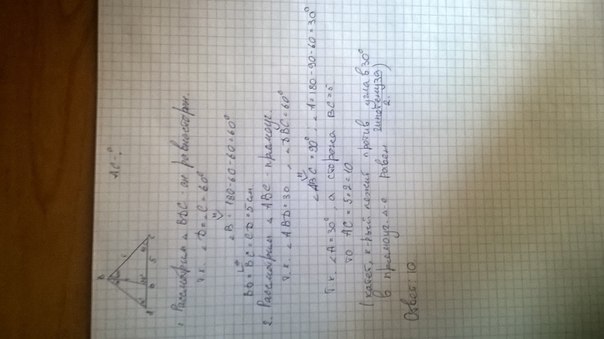 AC-?
1. Рассмотрим △ BDC он равносторон.
т.к. ∠D=∠C=60°
∠B=180-60-60=60°
BD=BC=CD=5см
2. Рассмотрим △ ABC прямоуг.
т.к. ∠ABD=30, ∠DBC=60°
∠ABC=90°, ∠A=180-90-60=30°
Т.к. ∠A=30°, а сторона BC=5
то AC=5·2=10
(катет, к-рый лежит против угла в 30°
в прямоуг. △ равен гипотенуза)
2
Ответ: 10